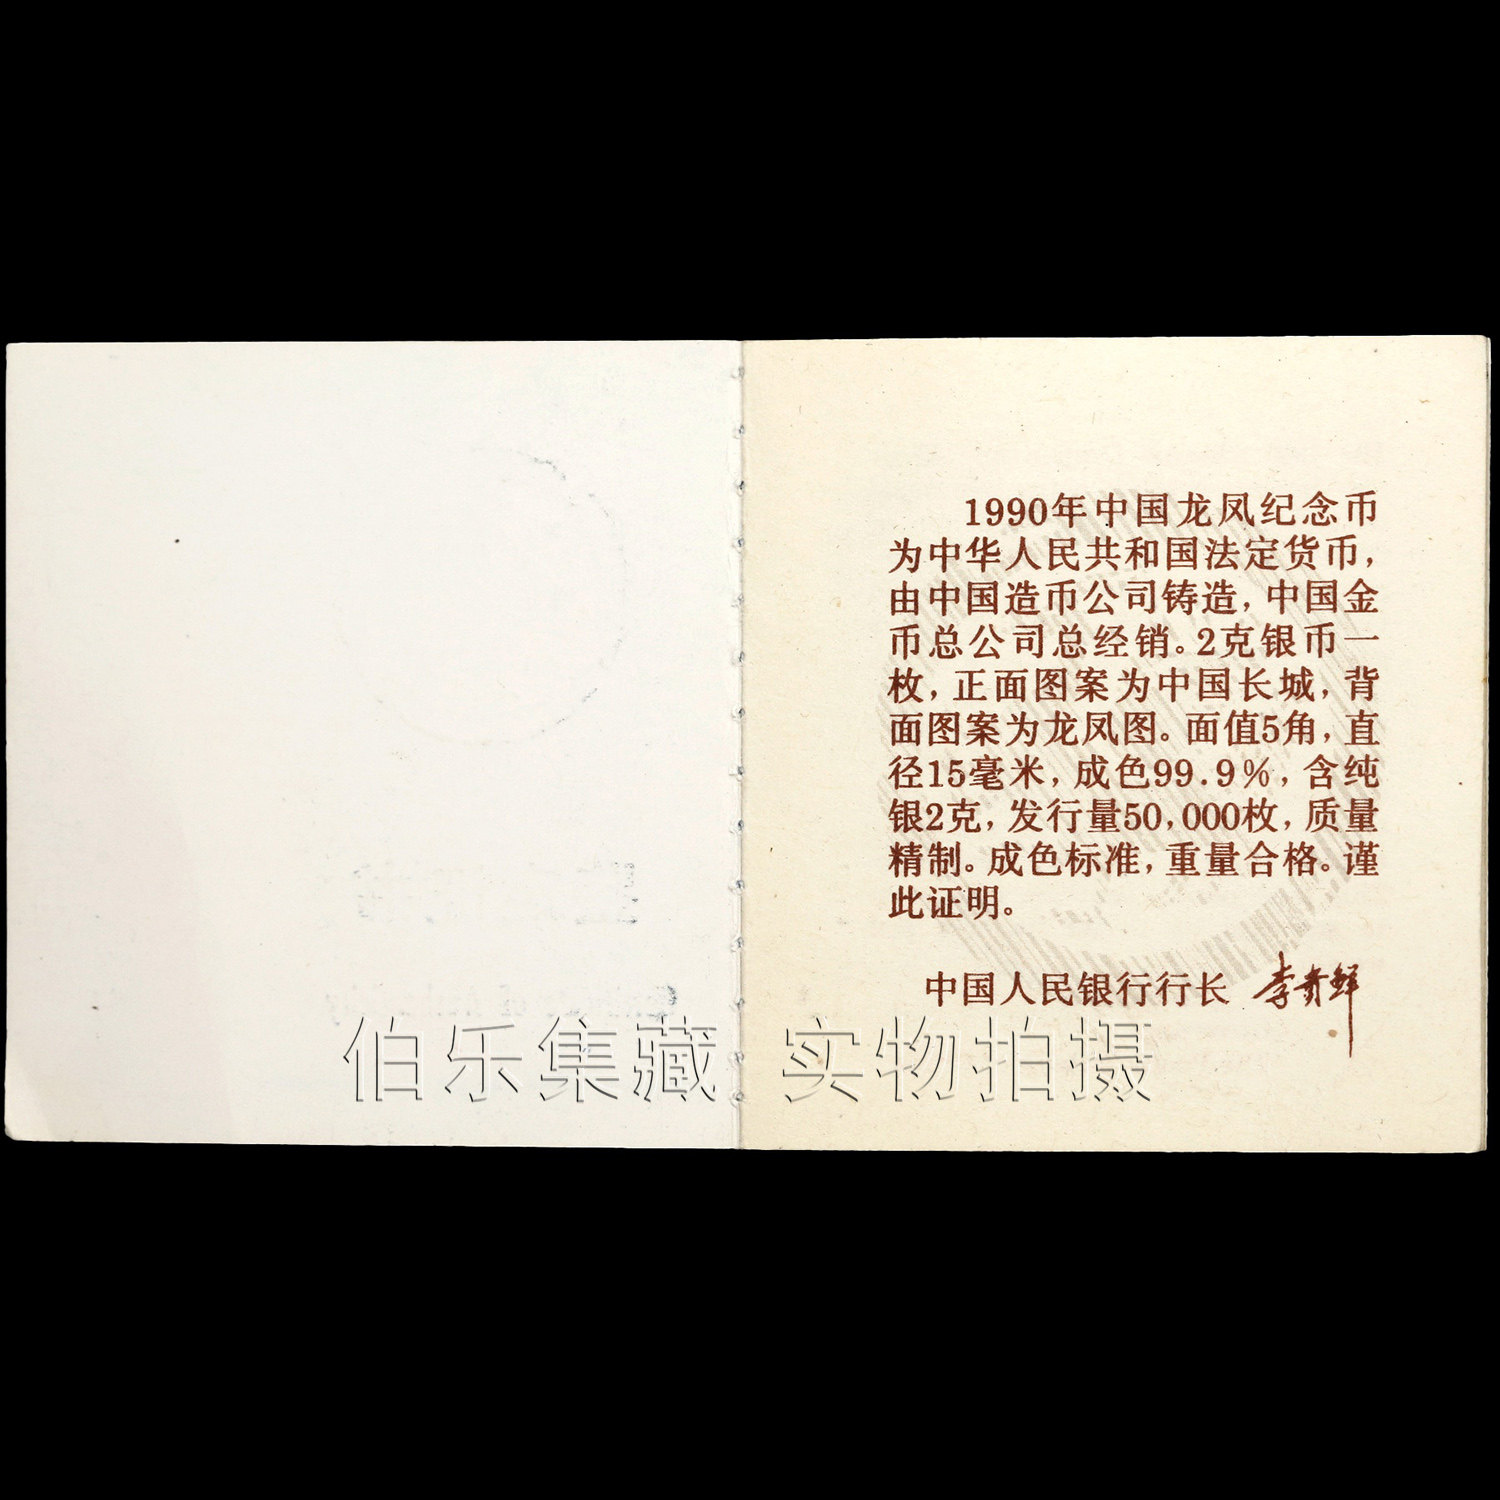 1990年中国龙凤纪念币
为中华人民共和国法定货币,
由中国造币公司铸造,中国金
币总公司总经销。2克银币一
枚,正面图案为中国长城,背
面图案为龙凤图。面值5角,直
径15毫米,成色99.9%,含纯
银2克,发行量50,000枚,质量
精制。成色标准,重量合格。谨
此证明。
中国人民银行行长 李贵鲜
伯乐集藏 实物拍摄